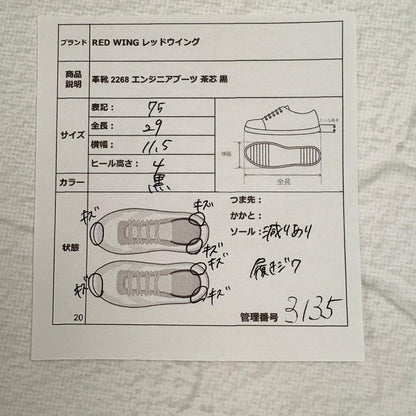 ブランド RED WING レッドウイング
商品説明 革靴 2268 エンジニアブーツ 茶芯 黒
サイズ
表記: 75
全長: 29
横幅: 11.5
ヒール高さ: 4
ヒール高さ
横幅
全長
カラー 黒
状態
キズ キズ
キズ
キズ
キズ キズ
つま先:
かかと:
ソール: 減りあり
履きジワ
20
管理番号 3135